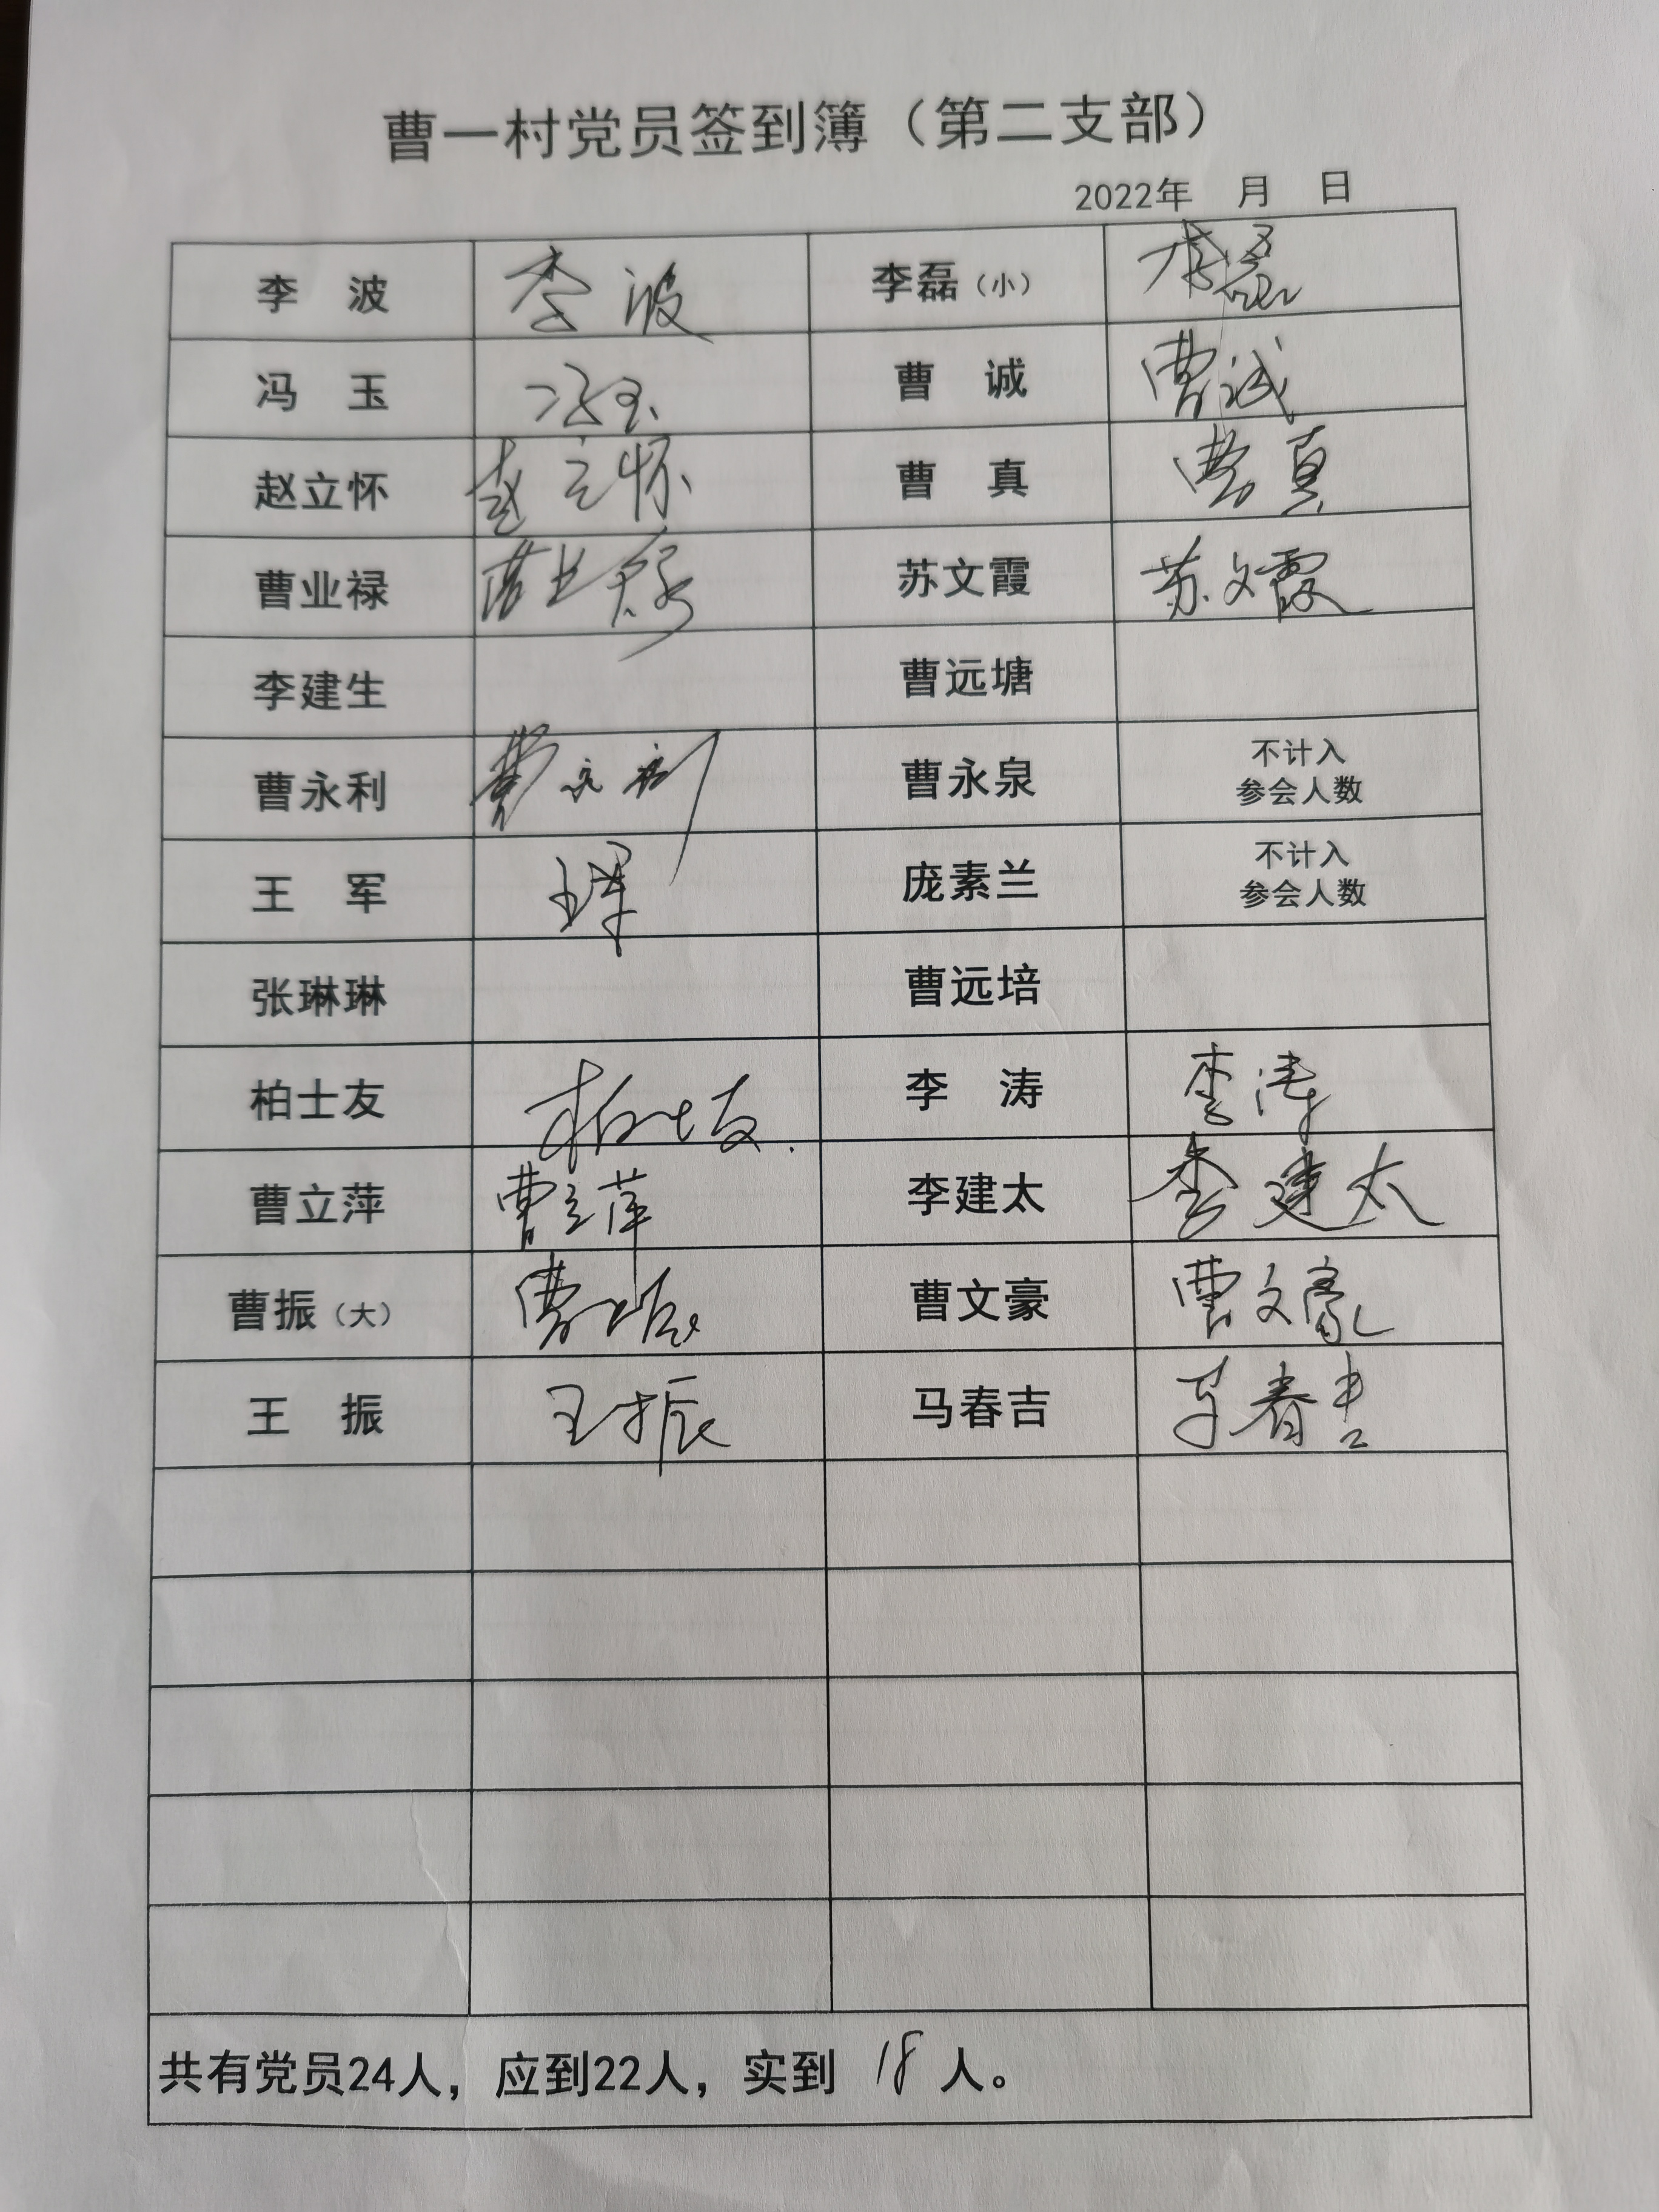 曹一村党员签到簿（第二支部）
2022年 月 日
李 波 李波 李磊（小） 李磊
冯 玉 冯玉 曹 诚 曹诚
赵立怀 赵立怀 曹 真 曹真
曹业禄 曹业禄 苏文霞 苏文霞
李建生 曹远塘
曹永利 曹永利 曹永泉 不计入
参会人数
王 军 王军 庞素兰 不计入
参会人数
张琳琳 曹远培
柏士友 柏士友 李 涛 李涛
曹立萍 曹立萍 李建太 李建太
曹振（大） 曹振 曹文豪 曹文豪
王 振 王振 马春吉 马春吉
共有党员24人，应到22人，实到 18 人。